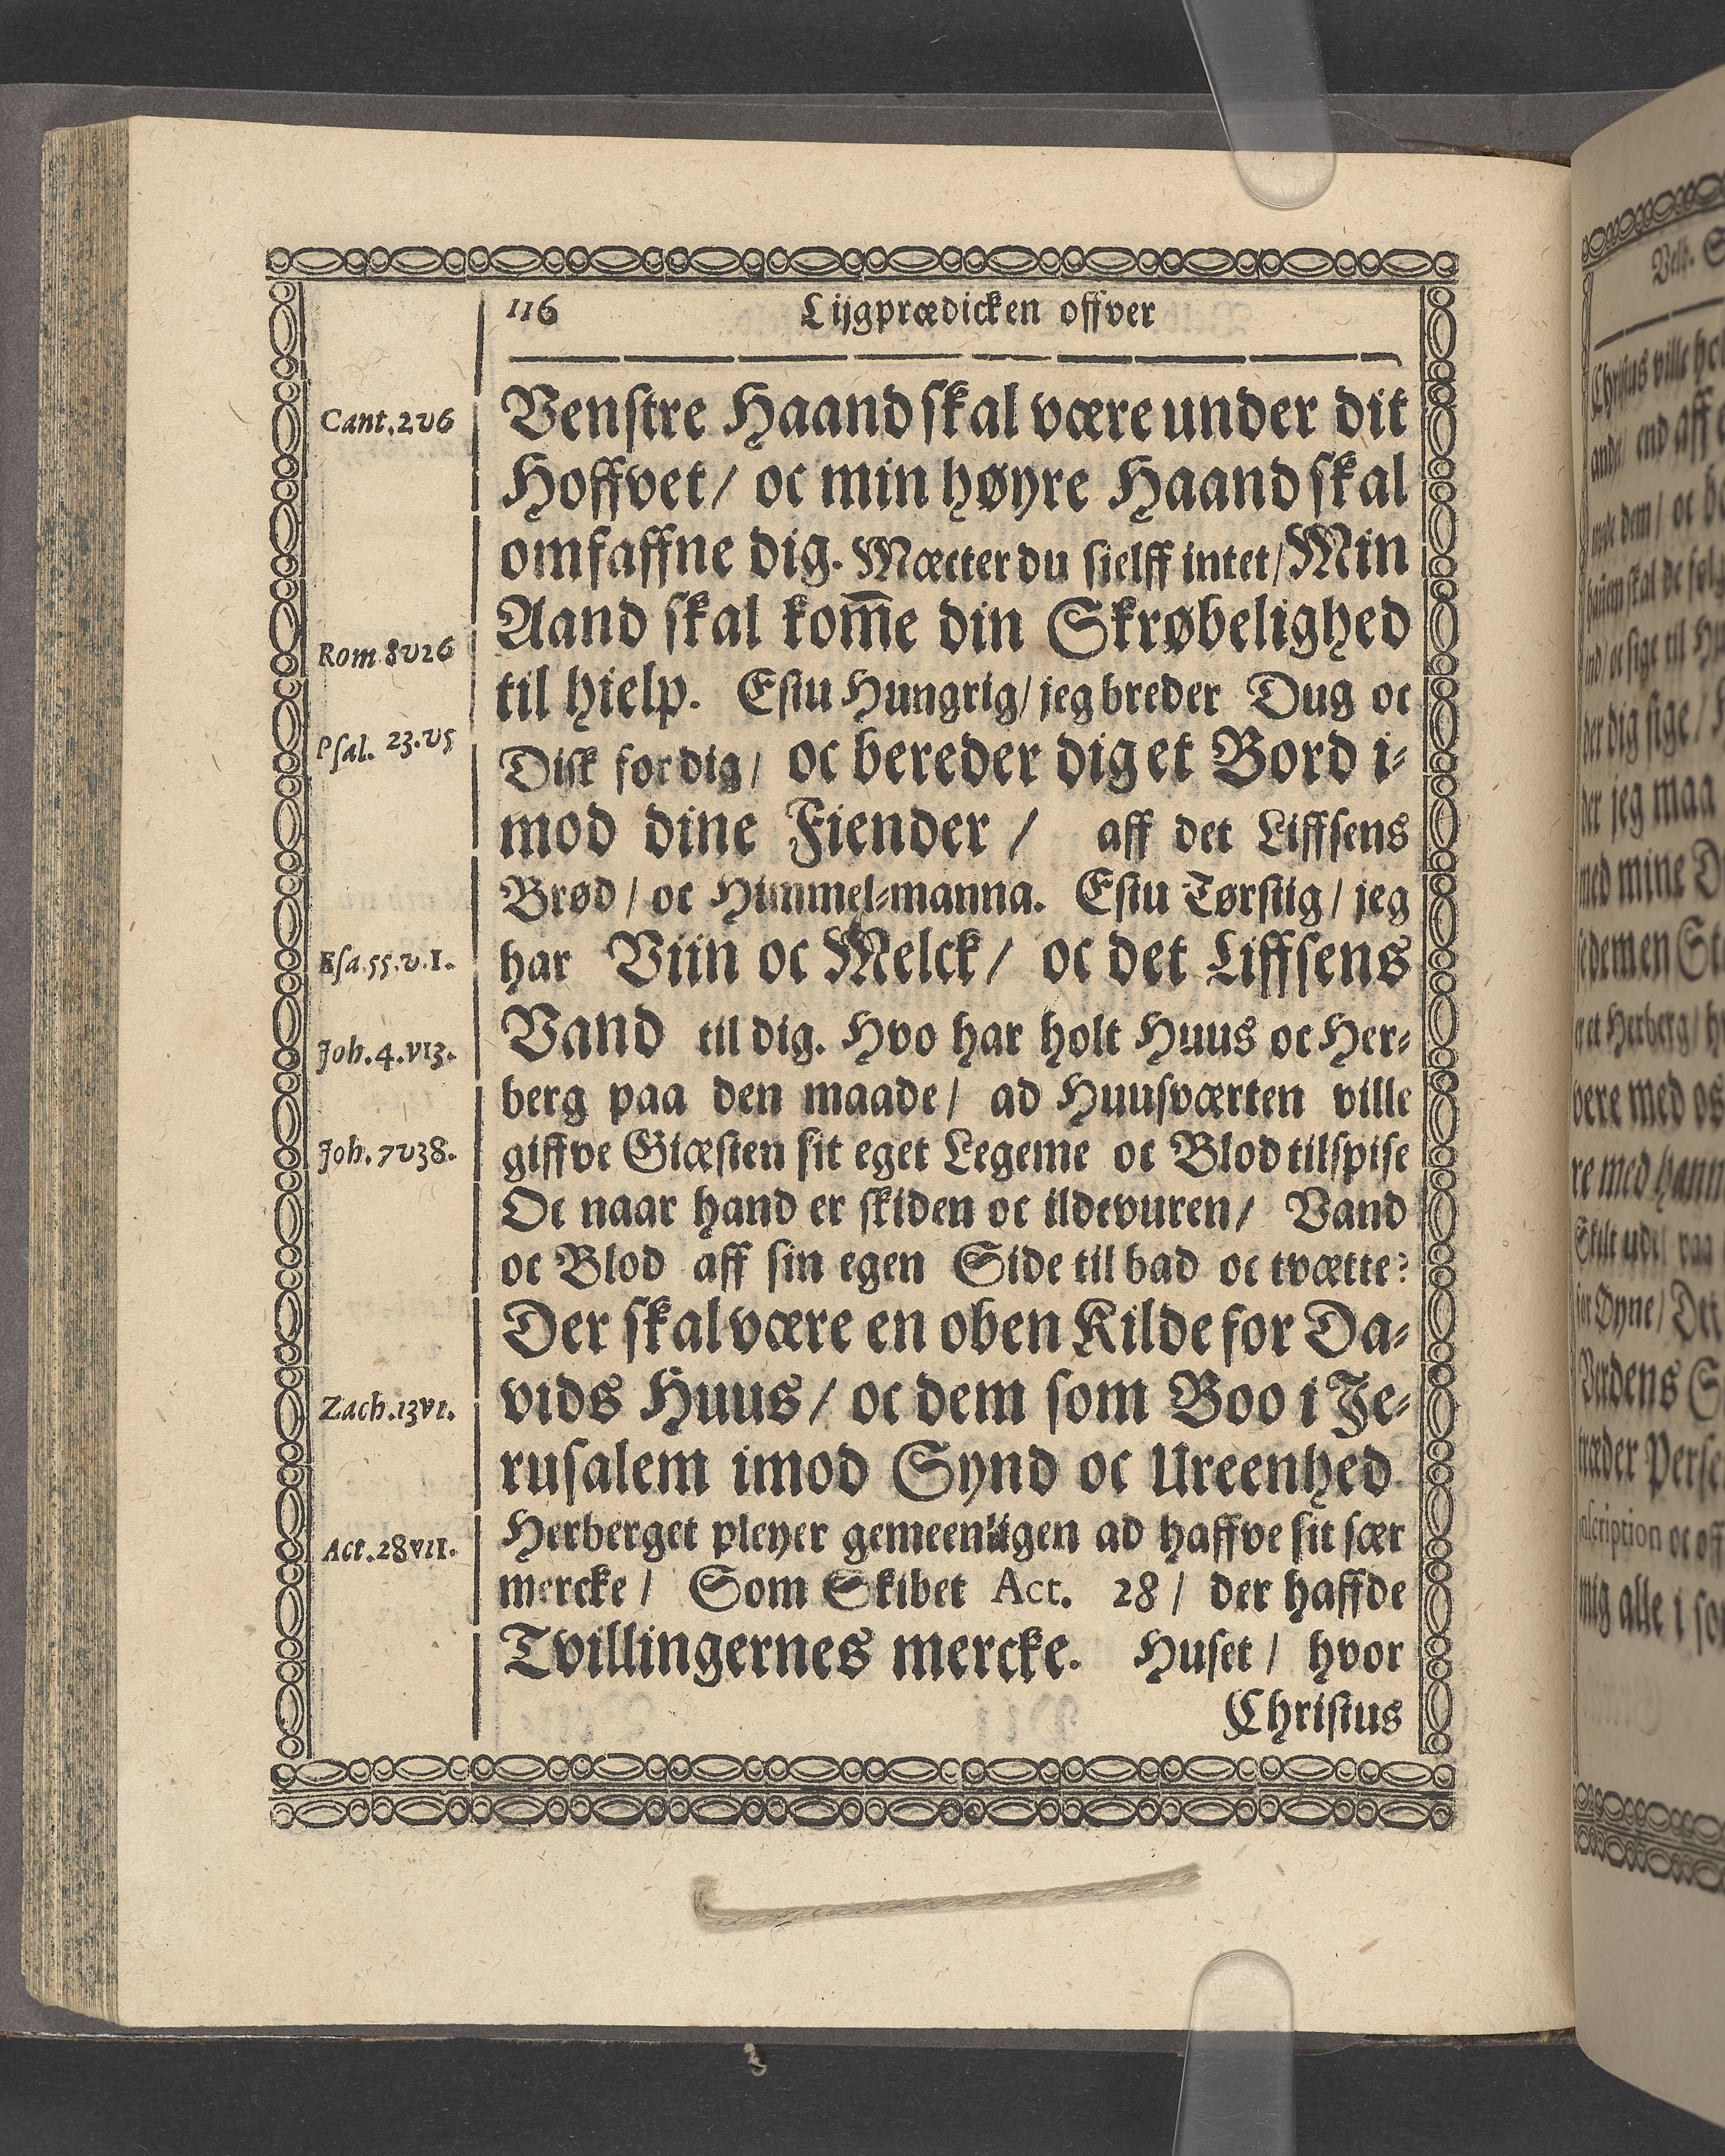 116 Lijgprædicken offver
Cant.2v6
Venstre Haand skal være under dit
Hoffvet / oc min høyre Haand skal
omfaffne dig. Mæcter du sielff intet / Min
Aand skal kom̅e din Skrøbelighed
Rom.8v26
til hielp. Estu Hungrig / jeg breder Dug oc
Psal. 23.v5
Disk for dig / oc bereder dig et Bord i-
mod dine Fiender / aff det Liffsens
Brød / oc Himmel-manna. Estu Tørstig / jeg
Esa.55.v.1.
har Viin oc Melck / oc det Liffsens
Joh.4.v13.
Vand til dig. Hvo har holt Huus oc Her-
berg paa den maade / ad Huusværten ville
Joh.7v38.
giffve Giæsten sit eget Legeme oc Blod til spise
Oc naar hand er skiden oc ildevuren / Vand
oc Blod aff sin egen Side til bad oc tvætte?
Der skal være en oben Kilde for Da-
Zach.13v1.
vids Huus / oc dem som Boo i Je-
rusalem imod Synd oc Ureenhed
Act.28v11.
Herberget pleyer gemeenligen ad haffve sit sær
mercke / Som Skibet Act. 28 / der haffde
Tvillingernes mercke. Huset / hvor
Christus
Velb.
Christus ville
ande / end aff
dem / oc
skal de
oc sige til
dig sige /
jeg maa
med mine
et Herberg /
vere med os
re med hann
for Øyne / Det
Verdens
træder
oc off
mig alle i